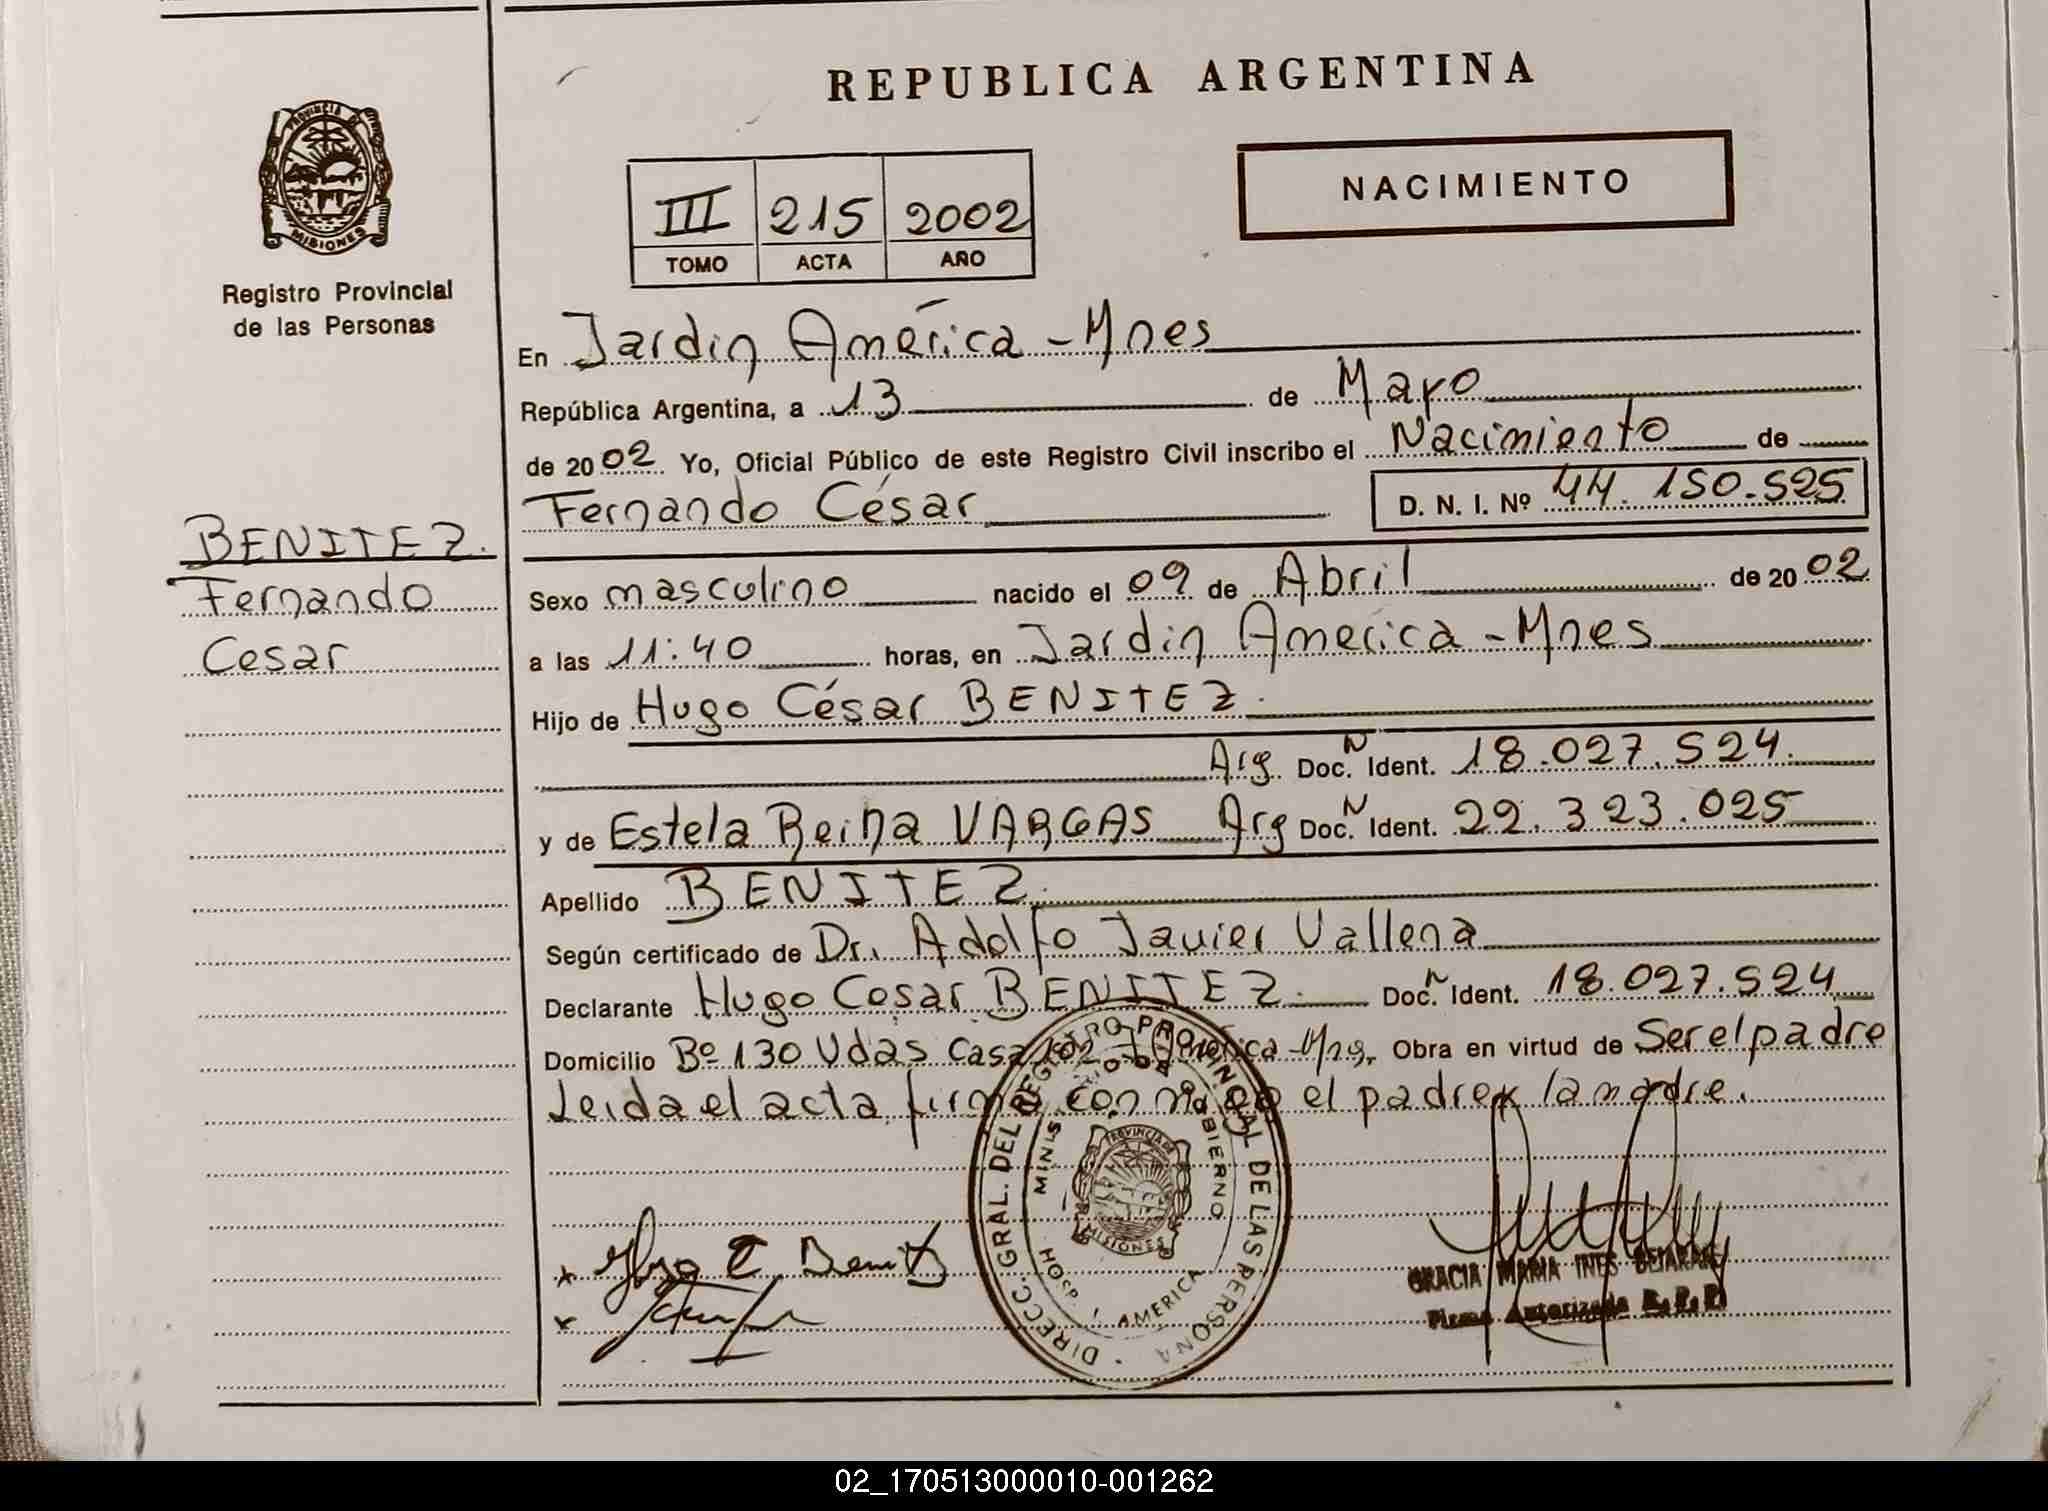 REPUBLICA ARGENTINA
PROVINCIA DE
MISIONES
Registro Provincial
de las Personas
III 215 2002
TOMO ACTA AÑO
NACIMIENTO
En Jardin América - Mnes
República Argentina, a 13 de Mayo
de 2002 Yo, Oficial Público de este Registro Civil inscribo el Nacimiento de
Fernando César D. N. I. Nº 44.150.525
BENITEZ.
Fernando
Cesar
Sexo masculino nacido el 09 de Abril de 2002
a las 11:40 horas, en Jardin America - Mnes
Hijo de Hugo César BENITEZ.
Arg Doc. N Ident. 18.027.524.
y de Estela Reina VARGAS Arg Doc. N Ident. 22.323.025
Apellido BENITEZ.
Según certificado de Dr. Adolfo Javier Vallena
Declarante Hugo Cesar BENITEZ. Doc. N Ident. 18.027.524
Domicilio Bº 130 Vdas Casa América - Obra en virtud de Ser el padre
Leida el acta, firma conmigo el padre y la madre.
DIRECC. GRAL. DEL REGISTRO PROVINCIAL DE LAS PERSONAS
MINISTERIO DE GOBIERNO
PROVINCIA DE
MISIONES
HOSP. AMERICA
x Hugo C Benitez
x
GRACIA MARIA INES BEJARANO
Firma Autorizada R.P.P.
02_170513000010-001262